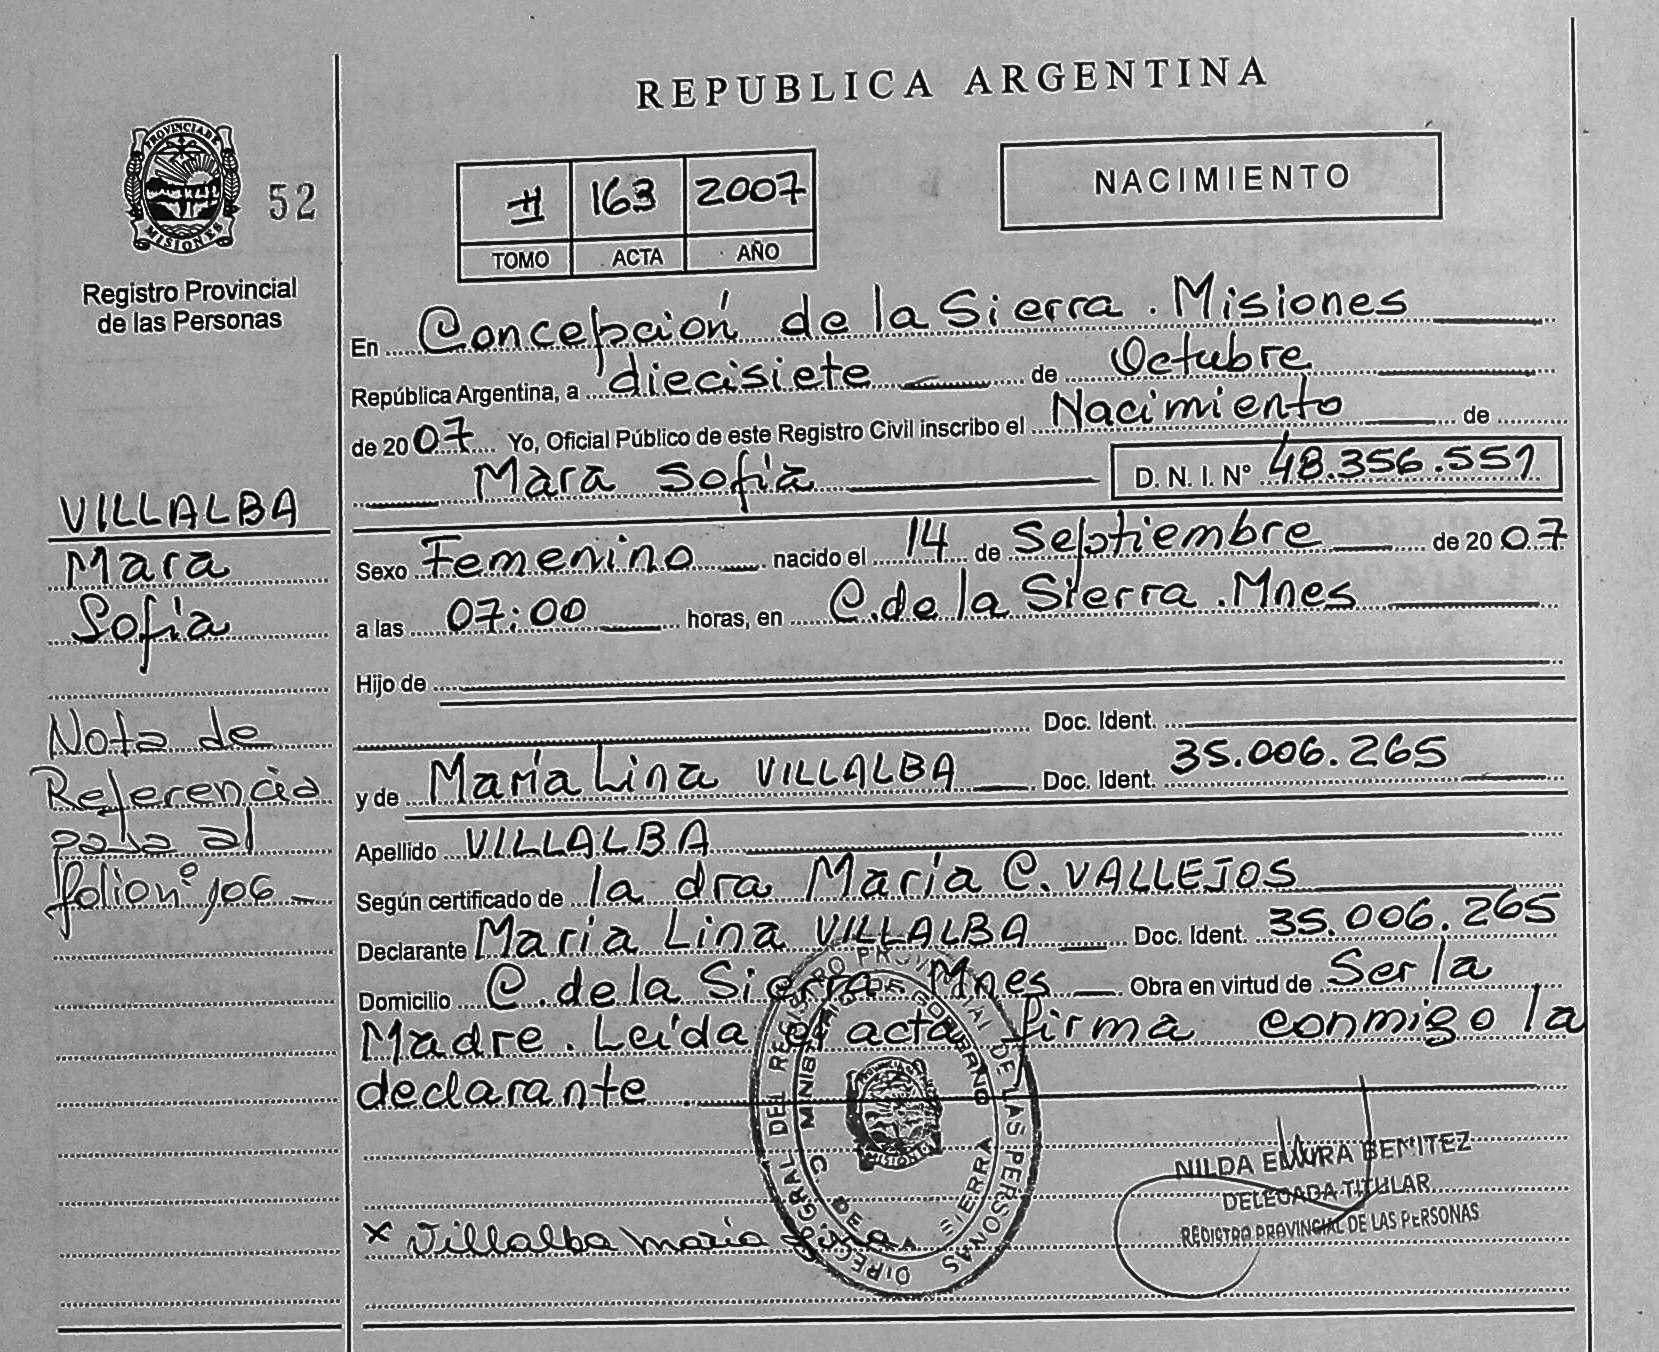 REPUBLICA ARGENTINA
PROVINCIA DE
MISIONES
52
Registro Provincial
de las Personas
163 2007
TOMO ACTA AÑO
NACIMIENTO
En Concepción de la Sierra . Misiones
República Argentina, a diecisiete de Octubre
de 2007 Yo, Oficial Público de este Registro Civil inscribo el Nacimiento de
Mara Sofía D. N. I. N° 48.356.551
Sexo Femenino nacido el 14 de Septiembre de 2007
a las 07:00 horas, en C. de la Sierra . Mnes
Hijo de
Doc. Ident.
y de María Lina VILLALBA Doc. Ident. 35.006.265
Apellido VILLALBA
Según certificado de la dra María C. VALLEJOS
Declarante María Lina VILLALBA Doc. Ident. 35.006.265
Domicilio C. de la Sierra Mnes Obra en virtud de Ser la
Madre . Leída el acta firma conmigo la
declarante .
VILLALBA
Mara
Sofía
Nota de
Referencia
pasa al
folio nº 106
x Villalba maria lina
DIRECC. GRAL DEL REGISTRO PROVINCIAL DE LAS PERSONAS
MINISTERIO DE GOBIERNO
C. DE LA SIERRA
MISIONES
NILDA ELVIRA BENITEZ
DELEGADA TITULAR
REGISTRO PROVINCIAL DE LAS PERSONAS